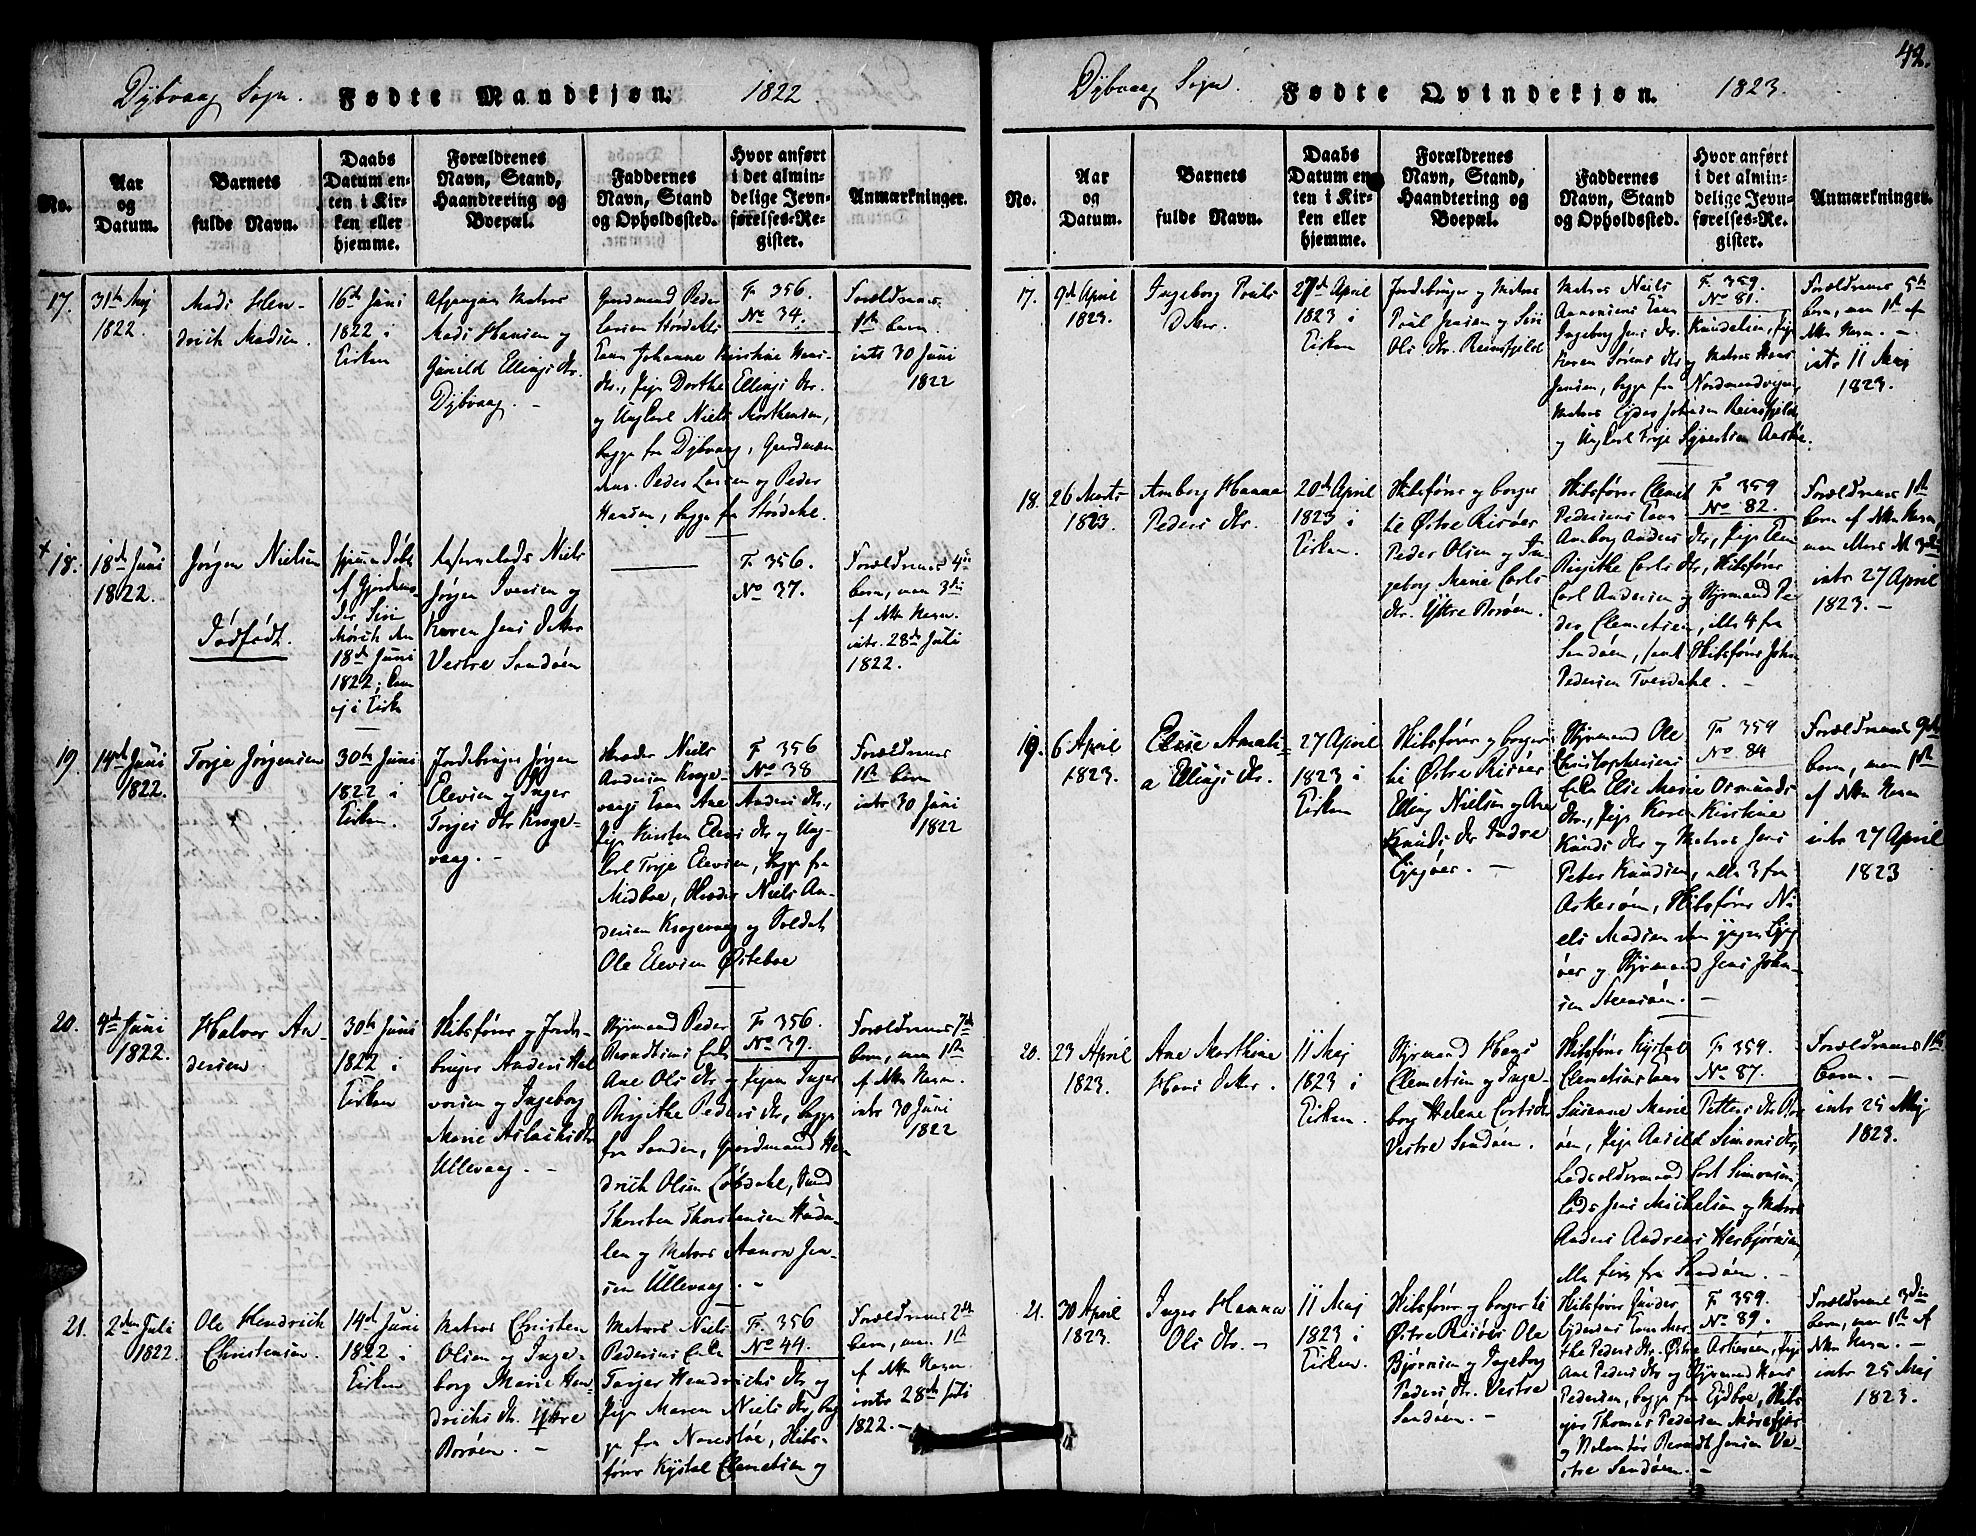 42.
Dybvaag Sogn. Fødte Mandkjøn. 1822.
No.
Aar
og
Datum.
Barnets
fulde Navn.
Daabs
Datum en-
ten i Kir-
ken eller
hjemme.
Forældrenes
Navn, Stand,
Haandtering og
Boepæl.
Faddernes
Navn, Stand
og Opholdssted.
Hvor anført
i det almin-
delige Jevn-
førelses-Re-
gister.
Anmærkninger.
17.
31te Maj
1822.
Mads Hen-
drich Madsen.
16de Juni
1822 i
Kirken
Mads Hansen og
Gunild Ellings Dtr.
Dybvaag. -
Gaardmand Peder
Larsen Størdahls
Kone Johanne Kirstine Hans
Dtr., Pige Dorthe Ellings Dtr.
og Ungkarl Niels Morthensen,
begge fra Dybvaag, Gaardmæn
Peder Larsen og Peder
Hansen, begge fra Størdahl.
F. 356.
No 34.
Forældrenes
1ste barn
intr 30 Juni
1822
18.
18de Juni
1822.
Jørgen Nielsen
Dødfødt.
18de Juni
1822,
ej i Kirke
Niels
Jørgen Iversen og
Karen Jens Dotter
Vestre Sandøen
F. 356.
No 37.
Forældrenes 4de
barn, men 3die
af Mkn Navn.
intr. 28de Juli
1822.
19.
14de Juni
1822.
Torje Jørgensen
30te Juni
1822 i
Kirken.
Jordebruger Jørgen
Elevsen og Inger
Torjes Dtr Krage-
vaag. -
Niels
Andersen Krage-
vaags Kone Ane Anders Dtr.,
Pige Kirsten Elevs Dtr og Ung-
karl Torje Elevsen, begge fra
Midboe, Niels An-
dersen Kragevaag og Soldat
Ole Elevsen Østeboe
F. 356
No 38
Forældrenes
1ste barn
intr 30 Juni
1822
20.
4de Juni
1822.
Halvor An-
dersen.
30te Juni
1822 i
Kirken
Skibsfører og Jorde-
bruger Anders Hal
vorsen og Ingeborg
Marie Aslachs Dtr
Ullevaag. -
Styrmand Peder
Ane Ols Dtr og Pigen Inger
Birgithe Peders Dtr, begge
fra Sanden, Gaardmand Hen
drich Olsen Løvdahl,
Thorsten Thorstensen
og Matros Aanon Jen-
sen Ullevaag. -
F. 356.
No 39.
Forældrenes 7de
barn, men 1ste
af Mkn Navn.
intr 30 Juni
1822
21.
2den Juli
1822.
Ole Hendrich
Christensen.
14de Juni
1822 i
Kirken
Matros Christen
Olsen og Inge-
borg Marie Hen-
drichs Dtr. Ytre
Borøen. -
Matros Niels
Pedersens
Hendrichs Dtr og
Pige Maren Niels Dtr, beg
ge fra Narestøe, Skibs-
fører Kystel Clemetsen og
F. 356
No 44.
Forældrenes 2det
barn, men 1ste
af Mkn Navn
intr 28de Juli
1822. -
Dybvaag Sogn. Fødte Qvindekjøn. 1823.
No.
Aar
og
Datum.
Barnets
fulde Navn.
Daabs
Datum en-
ten i Kir-
ken eller
hjemme.
Forældrenes
Navn, Stand,
Haandtering og
Boepæl.
Faddernes
Navn, Stand
og Opholdssted.
Hvor anført
i det almin-
delige Jevn-
førelses-Re-
gister.
Anmærkninger.
17.
9de April
1823.
Ingeborg Pouls
Dotter.
27de April
1823 i
Kirken
Jordebruger og Matros
Poul Jensen og Siri
Ols Dtr. Reinsfjeld
Matros Niels
Aanonsens Kone
Ingeborg Jens Dtr.
Karen Sørens Dtr og Matros Hans
Jensen, begge fra Nordmandvigen
Johnsen Reinsfjeld,
og Ungkarl Torje Syvertsen
F. 359.
No 81.
Forældrenes 5te
barn, men 1ste af
Mkn Navn. -
intr 11 Maj
1823.
18.
26 Marts
1823.
Amborg Hanna
Peders Dtr.
20de April
1823 i
Kirken.
Skibsfører og borger
til Østre Riisøer
Peder Olsen og In
geborg Marie Carls
Dtr. Ytre Borøen.
Skibsfører Clemet
Pedersens Kone
Amborg Anders Dtr, Pige Ane
Birgithe Carls Dtr, Skibsfører
Carl Andersen og Styrmand Pe-
der Clemetsen, alle 4 fra
Sandøen, samt Skibsfører John
Pedersen Tverdahl. -
F. 359
No 82.
Forældrenes 1ste
barn af Mkn Navn,
men Mors 3die
intr 27 April
1823. -
19.
6 April
1823.
Elsie Amali-
a Ellings Dtr.
27 April
1823 i
Kirken
Skibsfører og borger
til Østre Riisøer
Elling Nielsen og Ane
Knuds Dtr Indre
Lyngøer. -
Styrmand Ole
Christophersens
Enke Else Marie Osmunds
Dtr., Pige Karen Kirstine
Knuds Dtr og Matros Jens
Peter Knudsen, alle 3 fra
Askerøen, Skibsfører Ni-
els Madsen den yngre Lyng
øer og Styrmand Jens John-
sen Steensøen. -
F. 359
No 84
Forældrenes 9de
barn, men 1ste
af Mkn Navn
intr 27 April
1823
20.
23 April
1823.
Ane Marthine
Hans Dotter.
11 Maj
1823 i
Kirken.
Styrmand Hans
Clemetsen og Inge-
borg Helene Carls Dtr
Vestre Sandøen.
Skibsfører Kystel
Clemetsens Kone
Susanne Marie Petters Dtr Bor
øen, Pige Aasild Simons Dtr,
Lodsoldermand Carl Simonsen,
Lods Jens Michelsen og Matros
Anders Andreas Herbjørnsen,
alle fire fra Sandøen. -
F. 359.
No 87.
Forældrenes 1ste
barn. -
intr 25 Maj
1823.
21.
30 April
1823.
Inger Hanna
Ols Dtr. -
11 Maj
1823 i
Kirken.
Skibsfører og borger til
Østre Riisøer Ole
Bjørnsen og Ingeborg
Peders Dtr. Vestre
Sandøen. -
Skibsfører
Peders Dtr. Østre Askerøen, Pige
Ane Peders Dtr og Styrmand Hans
Pedersen, begge fra Eidboe, Skibs
Thomas Pedersen
og Berndt Jensen Ve-
stre Sandøen. -
F. 359.
No 89.
Forældrenes 3die
barn, men 1ste af
Mkn Navn. -
intr 25 Maj
1823.